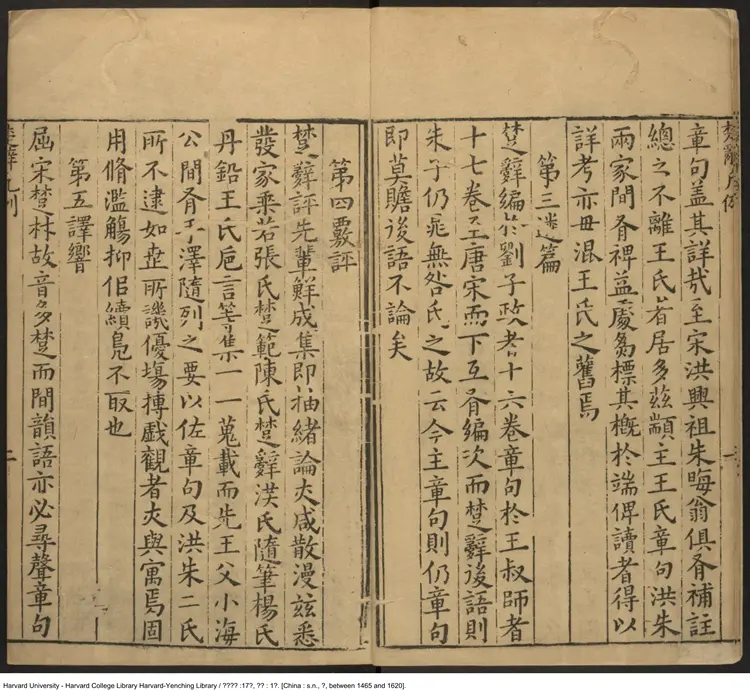 楚辭凡例
一
章句盖其詳哉至宋洪興祖朱晦翁俱有補註
總之不離王氏者居多茲顓主王氏章句洪朱
兩家間有裨益處芻標其槩於端俾讀者得以
詳考亦毋混王氏之舊焉
第三篇
楚辭編於劉子政者十六卷章句於王叔師者
十七卷至唐宋而下互有編次而楚辭後語則
朱子仍晁無咎氏之故云今主章句則仍章句
即莫贍後語不論矣
第四覈評
楚辭評先輩鮮成集即抽緒論亦咸散漫茲悉
發家乘若張氏楚範陳氏楚辭洪氏隨筆楊氏
丹鉛王氏巵言等集一一蒐載而先王父小海
公間有手澤隨列之要以佐章句及洪朱二氏
所不逮如世所譏優場搏戲觀者亦與寓焉固
用脩濫觴抑侣續鳧不取也
第五譯響
屈宋楚林故音多楚而間韻語亦必尋聲章句
楚辭凡例
二
Harvard University - Harvard College Library Harvard-Yenching Library / ???? :17?, ?? : 1?. [China : s.n., ?, between 1465 and 1620].